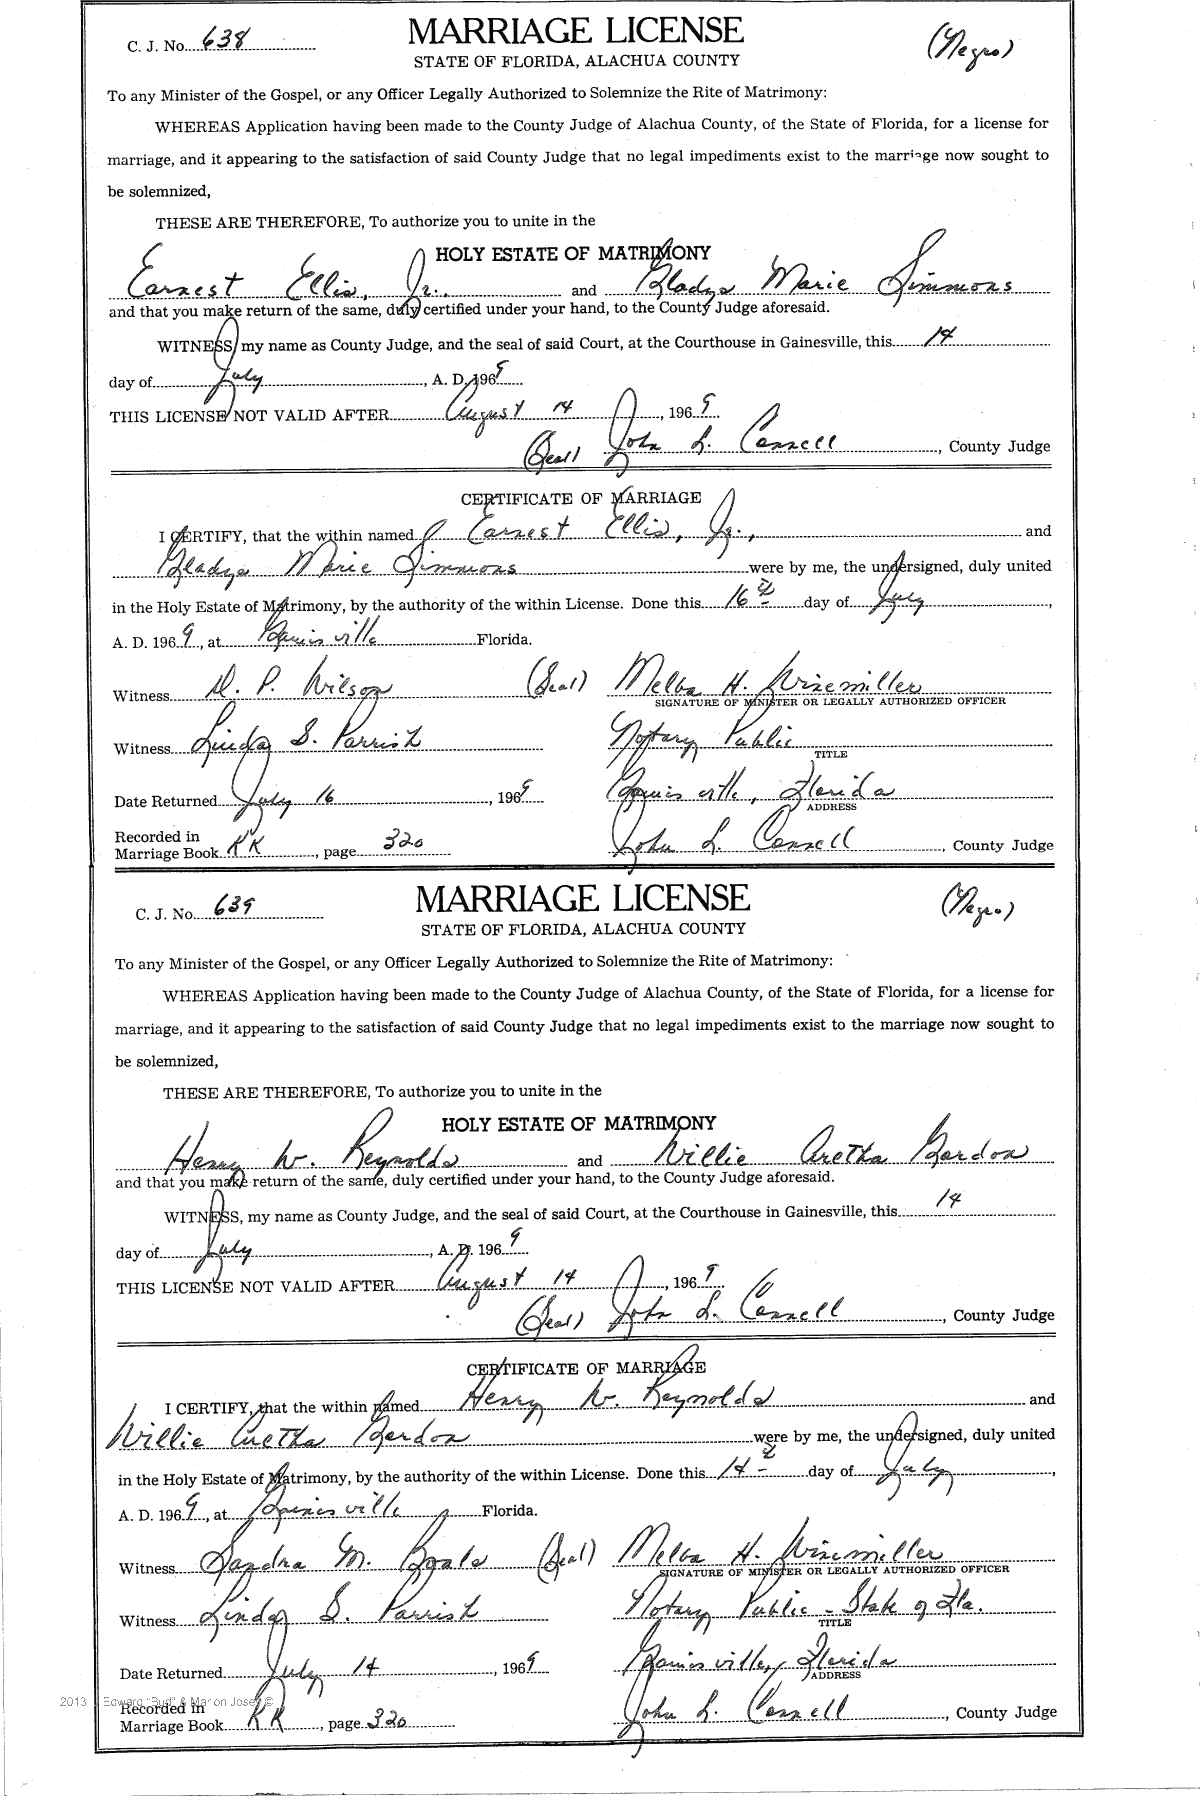 C. J. No. 638
MARRIAGE LICENSE
(Negro)
STATE OF FLORIDA, ALACHUA COUNTY
To any Minister of the Gospel, or any Officer Legally Authorized to Solemnize the Rite of Matrimony:
WHEREAS Application having been made to the County Judge of Alachua County, of the State of Florida, for a license for
marriage, and it appearing to the satisfaction of said County Judge that no legal impediments exist to the marriage now sought to
be solemnized,
THESE ARE THEREFORE, To authorize you to unite in the
HOLY ESTATE OF MATRIMONY
Earnest Ellis, Jr., and Gladys Marie Simmons
and that you make return of the same, duly certified under your hand, to the County Judge aforesaid.
WITNESS, my name as County Judge, and the seal of said Court, at the Courthouse in Gainesville, this 14
day of July, A. D. 1969
THIS LICENSE NOT VALID AFTER August 14, 1969
(Seal) John L. Connell, County Judge
CERTIFICATE OF MARRIAGE
I CERTIFY, that the within named Earnest Ellis, Jr., and
Gladys Marie Simmons were by me, the undersigned, duly united
in the Holy Estate of Matrimony, by the authority of the within License. Done this 16th day of July,
A. D. 1969, at Gainesville Florida.
Witness D. P. Wilson (Seal) Melba H. Winemiller
SIGNATURE OF MINISTER OR LEGALLY AUTHORIZED OFFICER
Witness Linda S. Parrish Notary Public
TITLE
Date Returned July 16, 1969 Gainesville, Florida
ADDRESS
Recorded in
Marriage Book KK, page 320 John L. Connell, County Judge
C. J. No. 639
MARRIAGE LICENSE
(Negro)
STATE OF FLORIDA, ALACHUA COUNTY
To any Minister of the Gospel, or any Officer Legally Authorized to Solemnize the Rite of Matrimony:
WHEREAS Application having been made to the County Judge of Alachua County, of the State of Florida, for a license for
marriage, and it appearing to the satisfaction of said County Judge that no legal impediments exist to the marriage now sought to
be solemnized,
THESE ARE THEREFORE, To authorize you to unite in the
HOLY ESTATE OF MATRIMONY
Henry W. Reynolds and Willie Aretha Gordon
and that you make return of the same, duly certified under your hand, to the County Judge aforesaid.
WITNESS, my name as County Judge, and the seal of said Court, at the Courthouse in Gainesville, this 14
day of July, A. D. 1969
THIS LICENSE NOT VALID AFTER August 14, 1969
(Seal) John L. Connell, County Judge
CERTIFICATE OF MARRIAGE
I CERTIFY, that the within named Henry W. Reynolds and
Willie Aretha Gordon were by me, the undersigned, duly united
in the Holy Estate of Matrimony, by the authority of the within License. Done this 14th day of July,
A. D. 1969, at Gainesville Florida.
Witness Sandra M. (Seal) Melba H. Winemiller
SIGNATURE OF MINISTER OR LEGALLY AUTHORIZED OFFICER
Witness Linda S. Parrish Notary Public - State of Fla.
TITLE
Date Returned July 14, 1969 Gainesville, Florida
ADDRESS
2013 Edward "Bud" & Marion Josey ©
Recorded in
Marriage Book KK, page 320 John L. Connell, County Judge